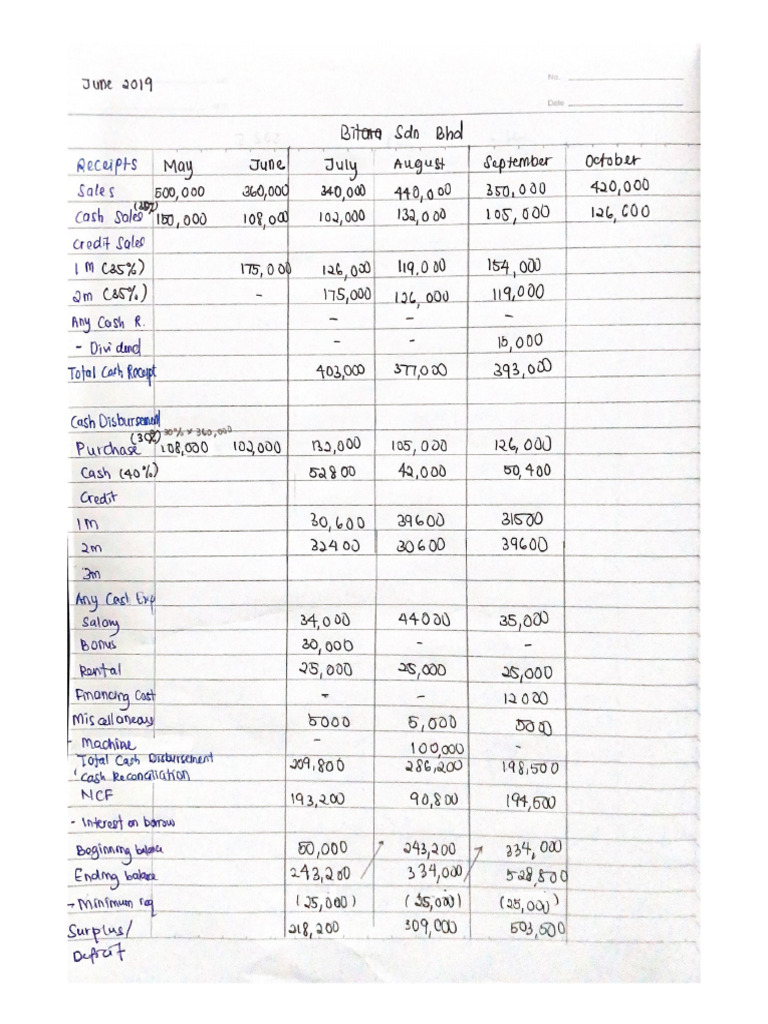 June 2019
No.
Date
Bitara Sdn Bhd
Receipts May June July August September October
Sales 500,000 360,000 340,000 440,000 350,000 420,000
Cash Sales (30%) 150,000 108,000 102,000 132,000 105,000 126,000
Credit Sales
1M (35%) 175,000 126,000 119,000 154,000
2m (35%) - 175,000 126,000 119,000
Any Cash R. - - -
- Dividend - - 15,000
Total Cash Receipt 403,000 377,000 393,000
Cash Disbursement
30% × 360,000
Purchase (30%) 108,000 102,000 132,000 105,000 126,000
Cash (40%) 52800 42,000 50,400
Credit
1M 30,600 39600 31500
2m 32400 30600 39600
3m
Any Cash Exp
Salary 34,000 44000 35,000
Bonus 30,000 - -
Rental 25,000 25,000 25,000
Financing Cost - - 12000
Miscellaneous 5000 5,000 5000
- Machine - 100,000 -
Total Cash Disbursement 209,800 286,200 198,500
Cash Reconciliation
NCF 193,200 90,800 194,500
- Interest on borrow
Beginning balance 50,000 243,200 334,000
Ending balance 243,200 334,000 528,500
- Minimum req (25,000) (25,000) (25,000)
Surplus/ 218,200 309,000 503,500
Deficit